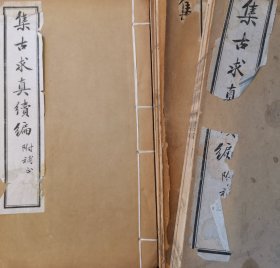 集古求真續編
附補正
集
集古求真
編
附補